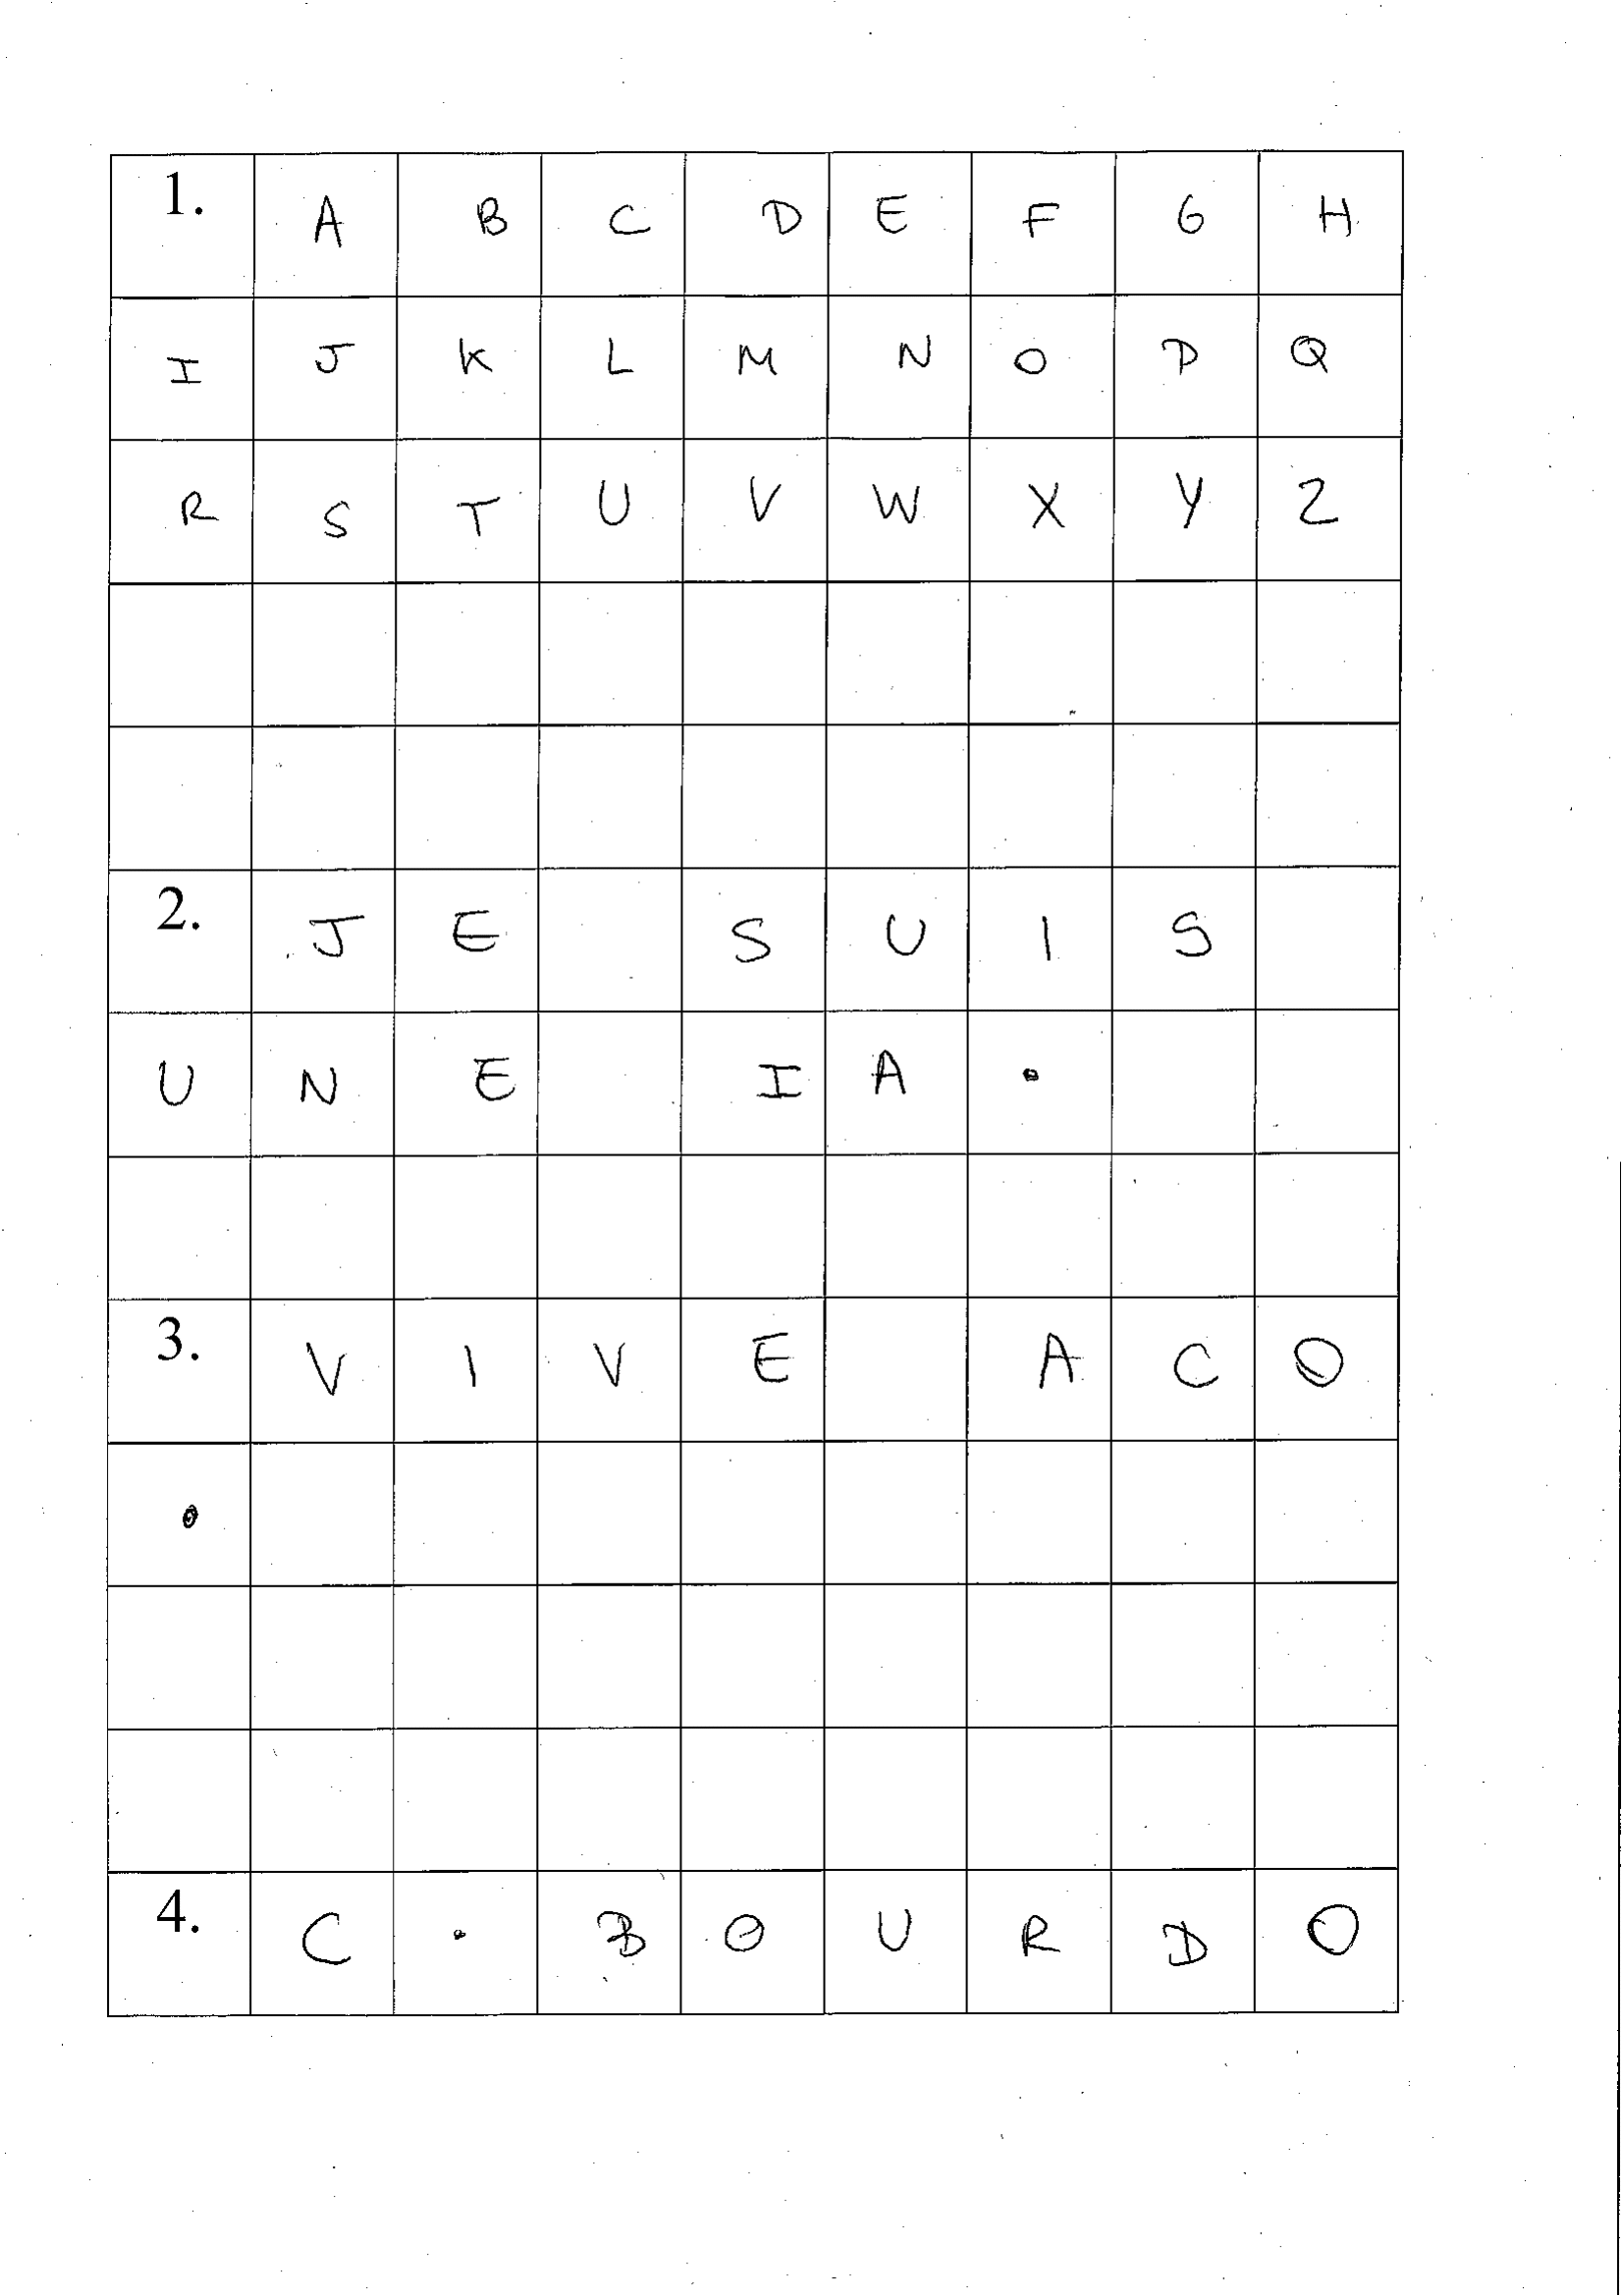 1. A B C D E F G H
I J K L M N O P Q
R S T U V W X Y Z
2. J E S U I S
U N E I A .
3. V I V E A C O
.
4. C . B O U R D O